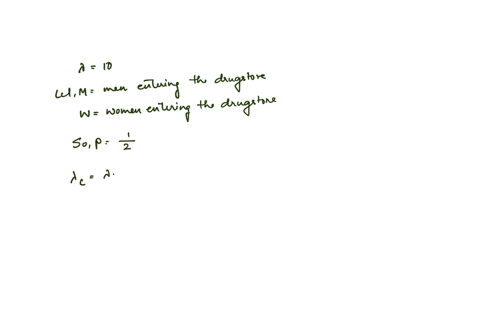 λ = 10
Let, M = men entering the drugstore
W = women entering the drugstore
So, P = 1/2
λc = λ.